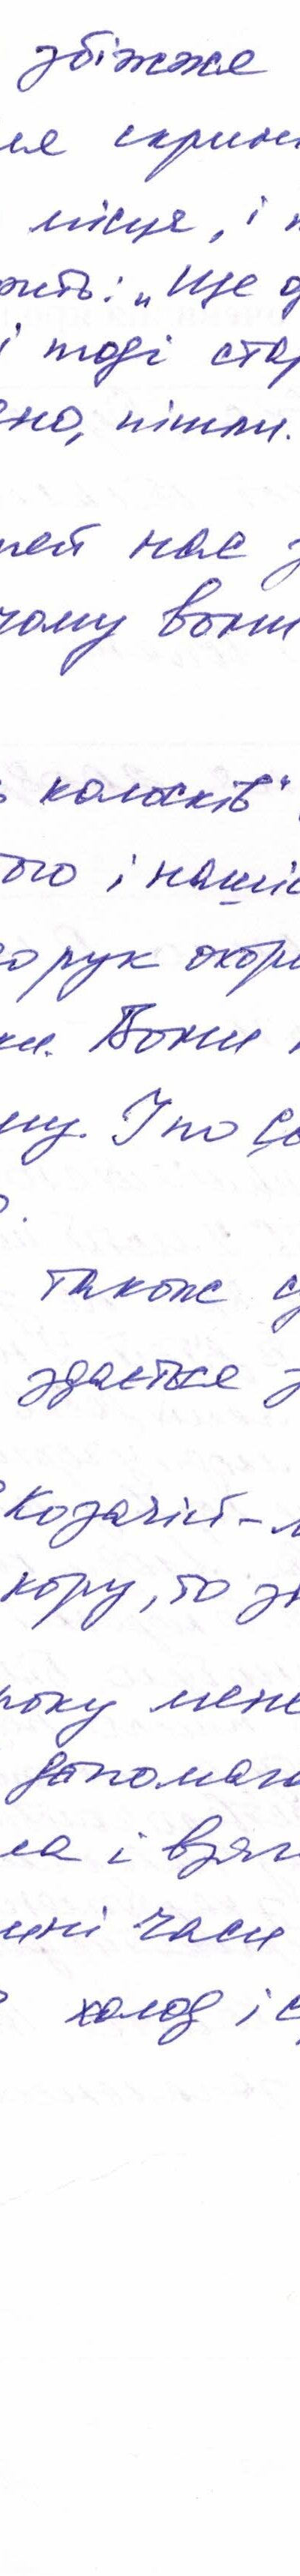 збіжжя
ля скрин
місця, і п
жить: „Ще о
і тоді стар
но, пішли.
тей нас з
чому вони
ь колосків"
ого і наші
о рук охор
ки. Вони п
ну. І по со
о.
також с
здається з
Козачій-л
кору, то зн
року мене
допомаг
ла і взял
ині часи
в холод і с